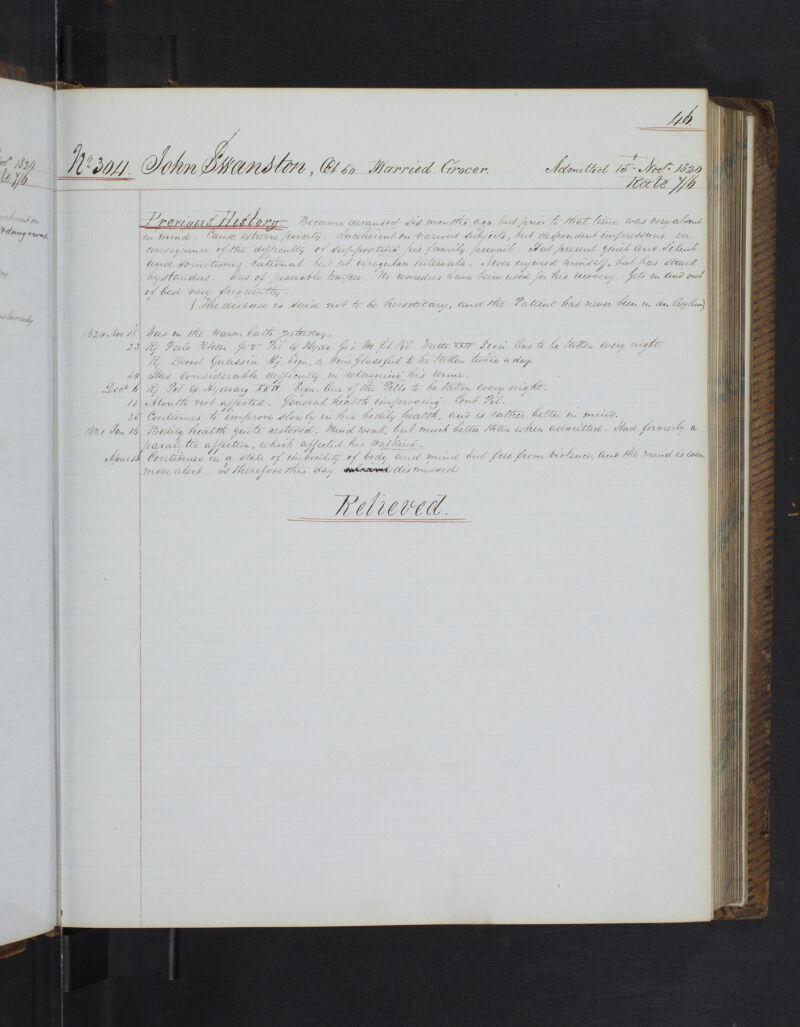 46
No 304. John Swanston, Æt 60 Married. Grocer. Admitted 15t Nov. 1820
Rate 7/6
Previous History Became deranged six months ago, but prior to that time was very absent
in mind. Cause extreme poverty. Incoherent on various subjects, but despondent impressions in
consequence of the difficulty of supporting his family prevail. At present quiet and silent
and sometimes rational but at irregular intervals. Never injured himself, but has struck
bystanders. Was of peaceable temper. No remedies have been used for his recovery. Gets in and out
of bed very frequently.
(The disease is said not to be hereditary, and the Patient has never been in an Asylum)
1820 Nov 18 Was in the warm bath yesterday.
23 Rj Pulv Rhei Pil Hydr. Pil. XXIV One to be taken every night.
Rj Decoct Quassia a Wine Glassful to be taken twice a day.
29 Has considerable difficulty in retaining his urine.
Decr 6 Rj Pil Hydrarg XXIV One of the Pills to be taken every night.
11 Mouth not affected. General health improving. Cont. Pil.
26 Continues to improve slowly in his bodily health, and is rather better in mind.
1821 Jan 16 Bodily health quite restored. Mind weak, but much better than when admitted. Had formerly a
paralytic affection, which affected his walking.
April 16 Continues in a state of imbecility of body and mind but free from violence, and the mind is even
more alert. Is therefore this day dismissed
Relieved.